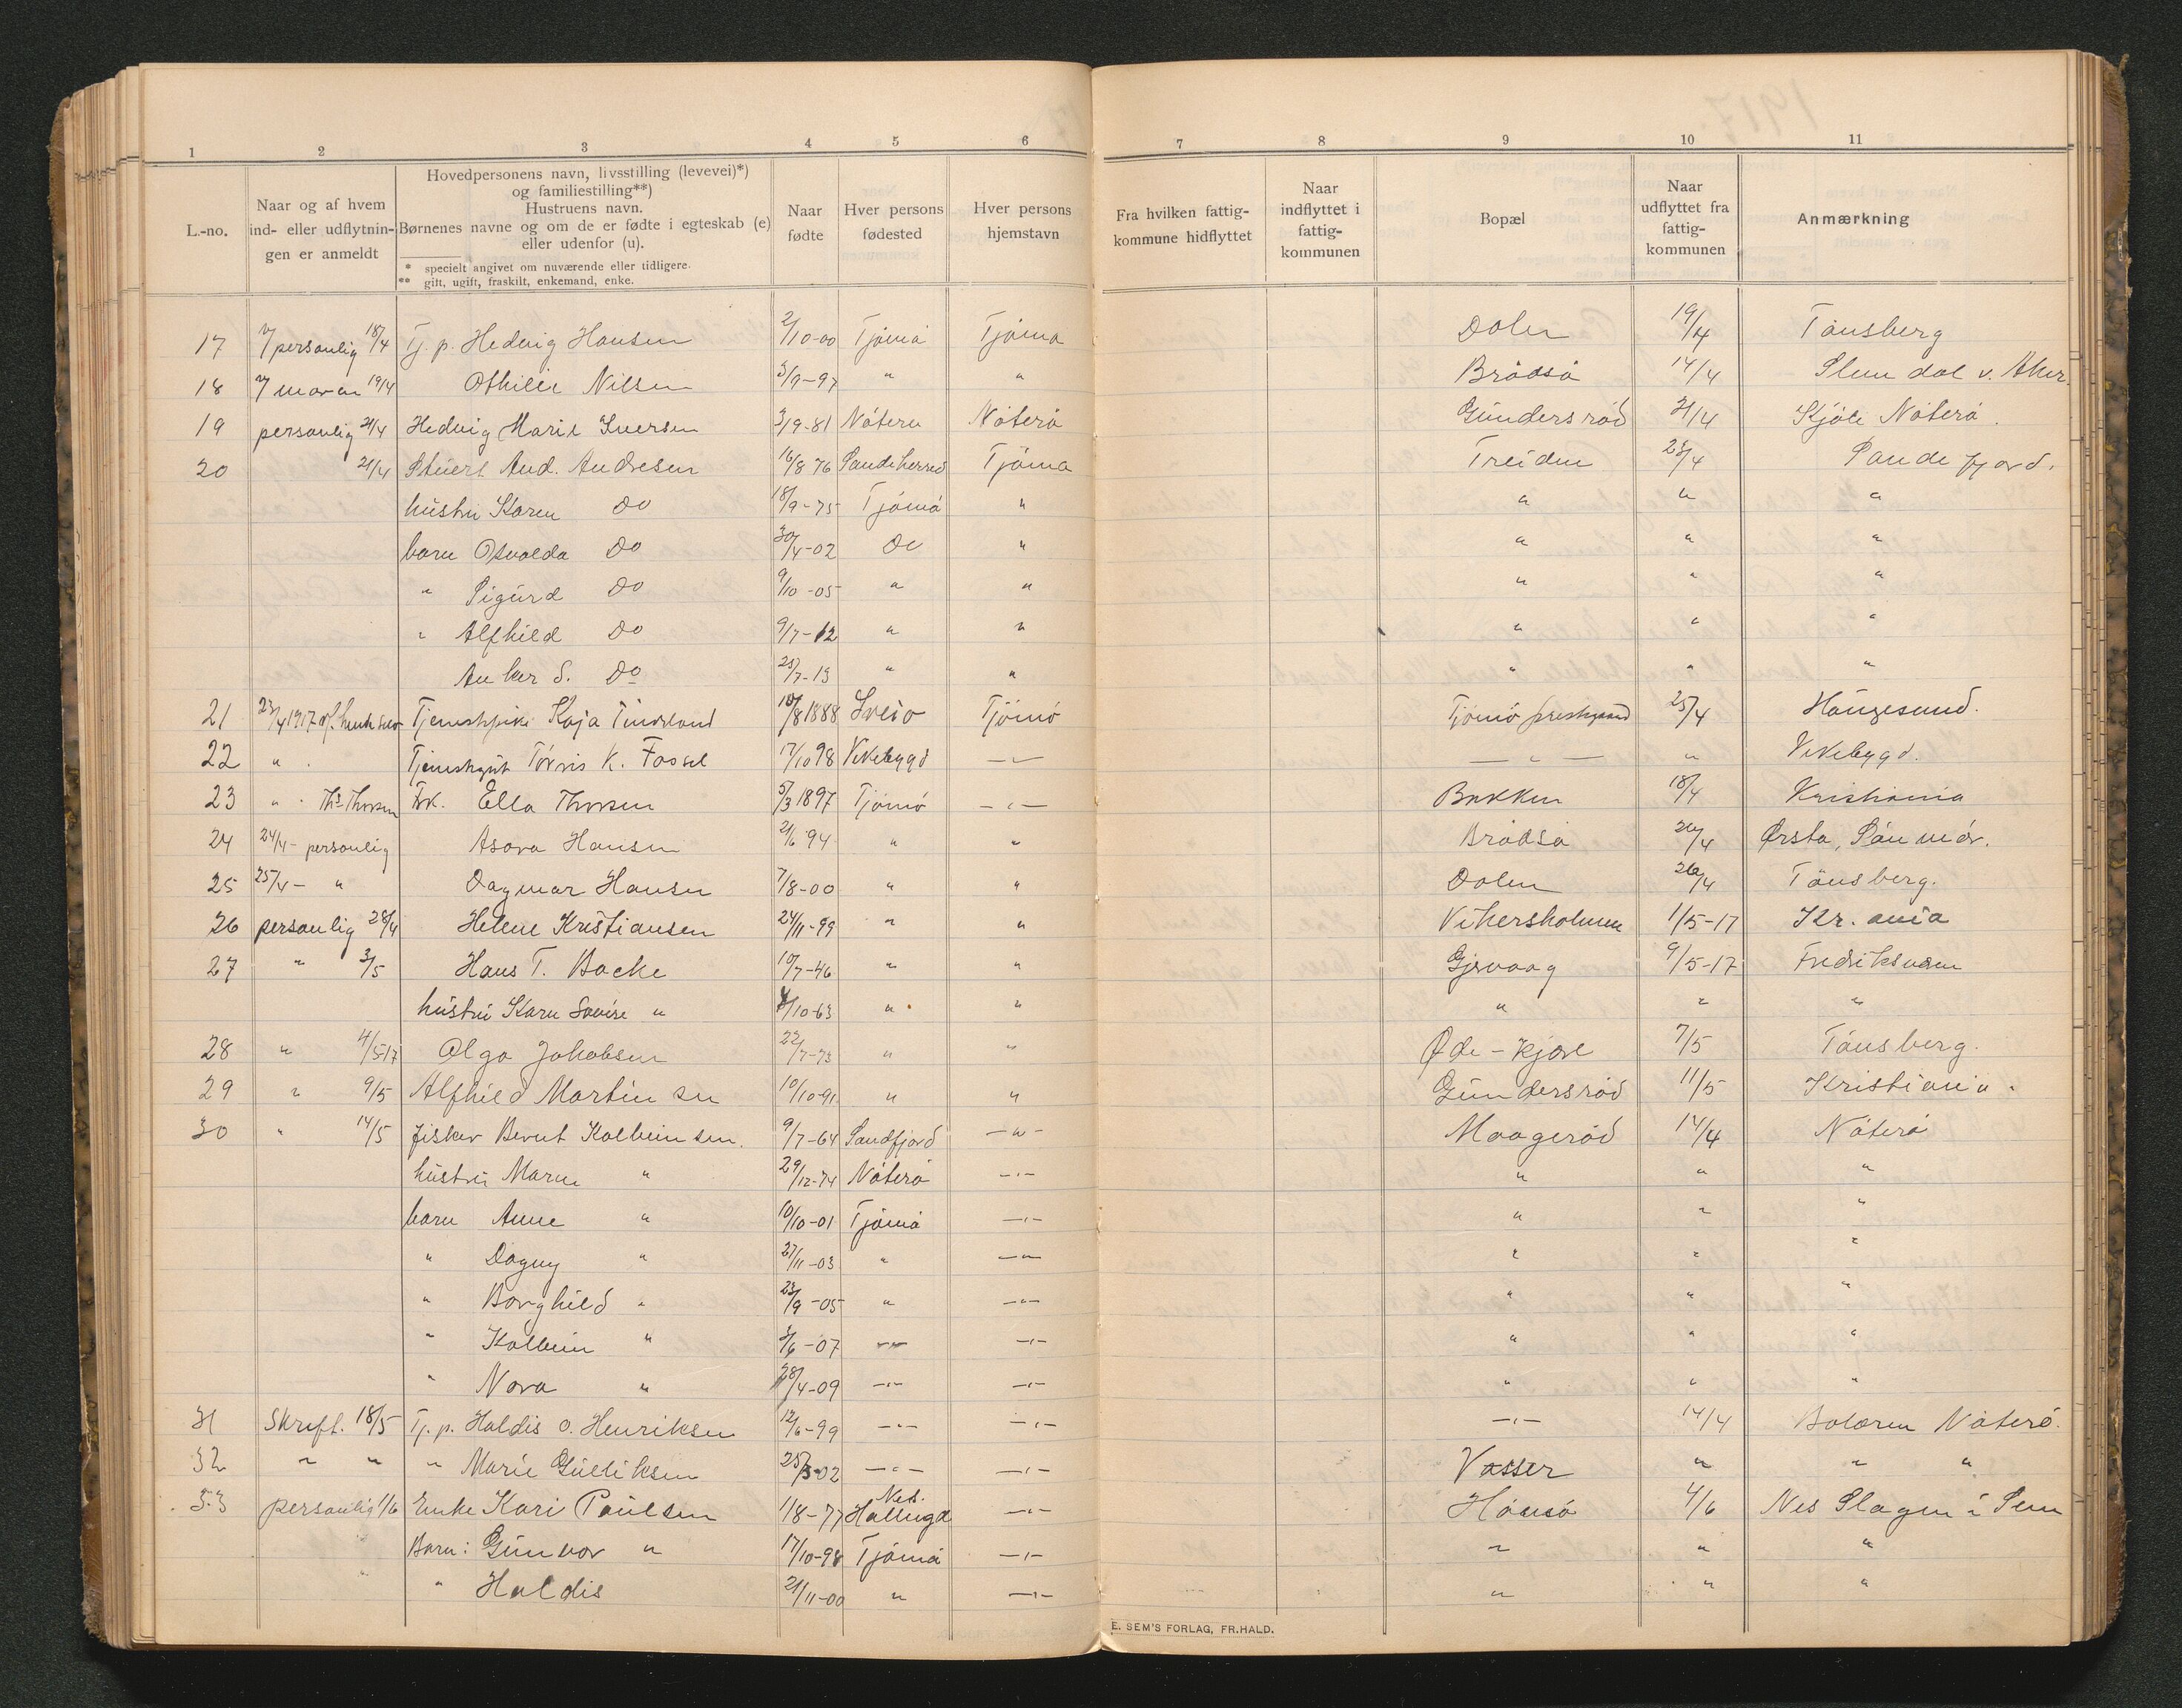 1917.
1 2 3 4 5 6 7 8 9 10 11
L.-no.
Naar og af hvem ind- eller udflytnin-gen er anmeldt
Hovedpersonens navn, livsstilling (levevei)*) og familiestilling**)
Hustruens navn.
Børnenes navne og om de er fødte i egteskab (e) eller udenfor (u).
* specielt angivet om nuværende eller tidligere.
** gift, ugift, fraskilt, enkemand, enke.
Naar fødte
Hver persons fødested
Hver persons hjemstavn
Fra hvilken fattig-kommune hidflyttet
Naar indflyttet i fattig-kommunen
Bopæl
Naar udflyttet fra fattig-kommunen
Anmærkning
17 personlig 18/4 Tj. p. Hedvig Hansen 2/10-00 Tjømø Tjømø Dalen 19/4 Tønsberg
18 19/4 Othilie Nilsen 3/9-97 " " Brødsø 14/4 v. Aker.
19 personlig 21/4 Hedvig Marie Iversen 3/9-81 Nøterø Nøterø Gundersrød 21/4 Kjøle Nøterø.
20 21/4 And. Andresen 16/8 76 Sandeherred Tjømø Treiden 23/4 Sandefjord.
hustru Karen Do 18/9-75 Tjømø " " " "
barn Osvalda Do 30/4-02 Do " " " "
" Sigurd Do 9/10-05 " " " " "
" Alfhild Do 9/7-12 " " " " "
Anker S. Do 25/7-13 " " " " "
21 23/4 1917 af Tjenestpike Kaja 10/8 1888 Sveio Tjømø Tjømø prestgaard 25/4 Haugesund.
22 " . Tjenestgut Tørris K. Fossel 17/10 98 Vikebygd —"— — " — " Vikebygd.
23 " . Ths. Thorsen Frk. Ella Thorsen 5/3 1897 Tjømø —"— Bakken 18/4 Kristiania
24 24/4 - personlig Asora Hansen 2/6 94 " " Brødsø 26/4 Ørsta, Sønmør.
25 25/4 - " Dagmar Hansen 7/8-00 " " Dalen 26/4 Tønsberg.
26 personlig 28/4 Helene Kristiansen 24/11-99 " " Vikersholmen 1/5-17 Kr.ania
27 " 3/5 Hans T. Backe 10/7-46 " " Gjervaag 9/5-17 Fredriksværn
hustru Karen Lovise " 4/10-63 " " " " "
28 " 4/5-17 Olga Jakobsen 22/7-73 " " Øde-Kjære 7/5 Tønsberg.
29 " 9/5 Alfhild Martinsen 10/10-91 " " Gundersrød 11/5 Kristiania.
30 " 14/5 fisker Bernt Kolbeinsen. 9/7-64 Sandfjord —"— Maagerød 14/4 Nøterø
hustru Maren " 29/12-74 Nøterø —"— " " "
barn Anne " 10/10-01 Tjømø —"— " " "
" Dagny " 27/11-03 " —"— " " "
" Borghild " 23/9-05 " —"— " " "
" Kolbein " 3/6-07 —"— —"— " " "
" Nora " 28/4-09 —"— —"— " " "
31 Skrift. 18/5 Tj. p. Haldis O. Henriksen 12/6-99 —"— —"— —"— 14/4 Bolæren Nøterø.
32 " " " Marie Gulliksen 25/3-02 —"— —"— Vasser " " "
33 personlig 1/6 Enke Kari Paulsen 1/8-77 Nes. Hallingd —"— Hønsø 4/6 Nes Slagen i Sem
Barn: Gunvor " 17/10-98 Tjømø —"— " " "
" Haldis 21/11-00 " —"— " " "
E. SEM'S FORLAG, FR.HALD.